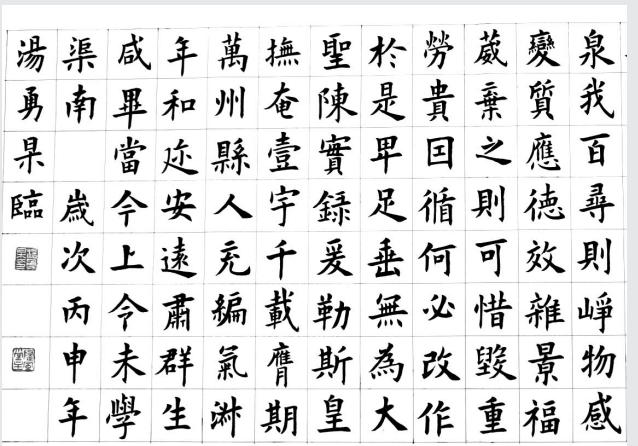 泉我百尋則崢物感
變質應德效雜景福
葳棄之則可惜毀重
勞貴囙循何必改作
於是卑足垂無為大
聖陳實録爰勒斯皇
撫奄壹宇千載膺期
萬州縣人充編氣淋
年和迩安遠肅群生
咸畢當今上令未學
渠南 歲次丙申年
湯勇杲臨